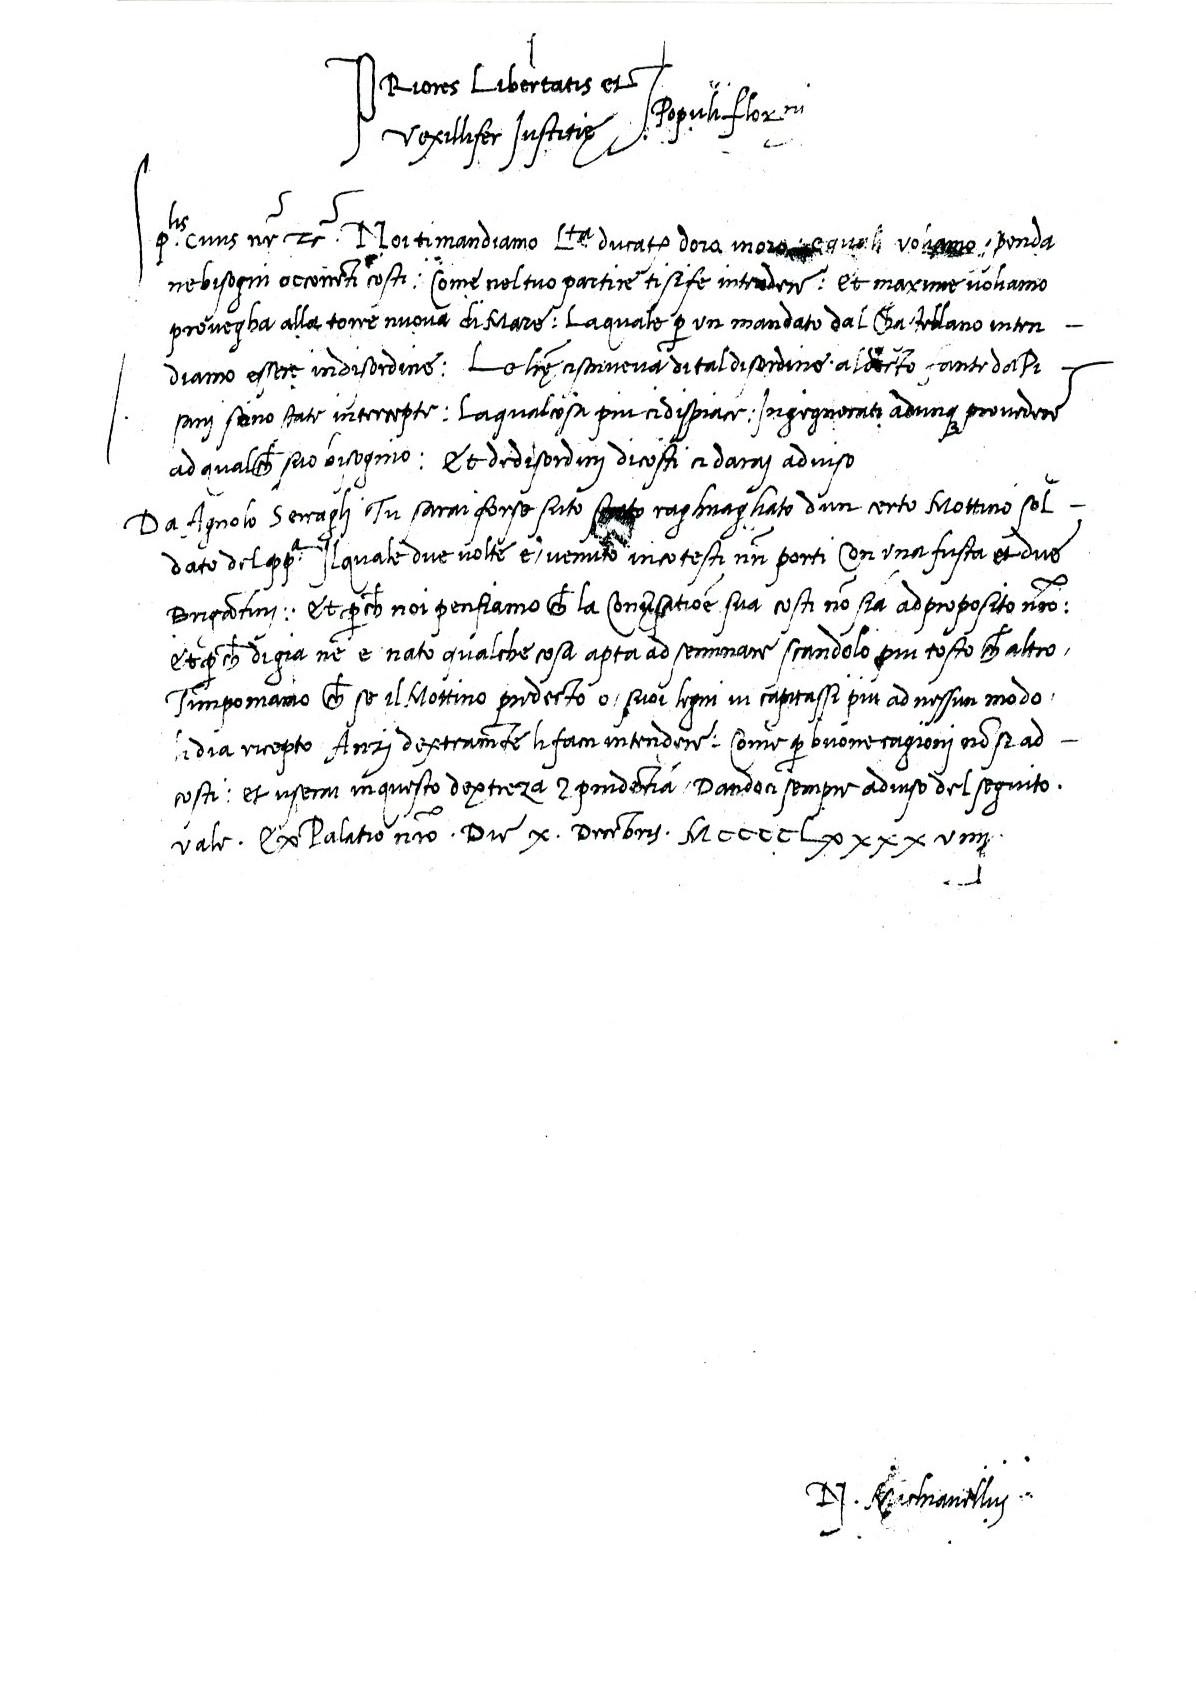 PRiores Libertatis et
Vexillifer Justitie
Populi flor ni
Sp.lis Civis nr zc. Noi ti mandiamo Lta ducati doro inoro equali voliamo spenda
nebisogni occorrenti costi: Come nel tuo partire ti si fe intendere: Et maxime voliamo
provegha alla torre nuova di Mare: Laquale p un mandato dal Castellano inten –
diamo essere indisordine: Le lre ci scriveva di tal disordine aldecto fante da Pi –
sani sono state intercepte: La qual cosa piu ci dispiace: Ingegnerati adunq provedere
ad qualch suo bisogno: Et dedisordini di costi ci darai adviso
Da Agnolo Serragli Tu sarai forse suto raghuagliato dun certo Mottino sol –
dato del ppa Il quale due volte e venuto incotesti nri porti Con una fusta et due
Brigantini: Et pch noi pensiamo ch la Conversatioe sua costi no sia adproposito nro:
Et pch di gia ne e nato qualche cosa apta ad seminare scandolo piu tosto ch altro,
Timponiamo ch se il Mottino predecto o suoi legni vi capitassi piu ad nessun modo
li dia ricepto Anzi dextramte li facci intendere: Come p buone cagioni no si ad –
costi: et userai in questo dextreza & prudentia Dandoci sempre adviso del seguito.
vale. Ex Palatio nro. Die x. Decembris. MCCCCLxxxxviiij.
N. Machiavellus